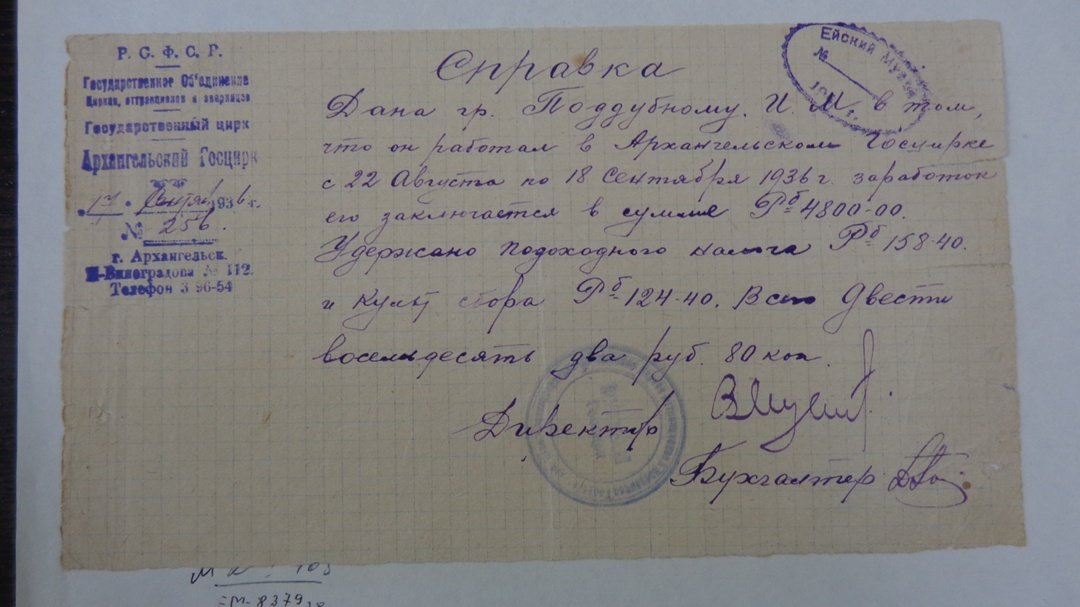 Р. С. Ф. С. Р.
Государственное Об'единение
Цирков, аттракционов и зверинцев
Государственный цирк
Архангельский Госцирк
17 · Сентяб 1936 г.
№ 256.
г. Архангельск.
П-Виноградова № 112.
Телефон 3 96-54
Ейский Музей
№
Справка
Дана гр. Поддубному. И. М. в том,
что он работал в Архангельском Госцирке
с 22 Августа по 18 Сентября 1936 г. заработок
его заключается в сумме Рб 4800-00.
Удержано подоходного налога Рб 158-40.
и культ сбора Рб 124-40. Всего Двести
восемьдесять два руб. 80 коп.
Директор
Бухгалтер